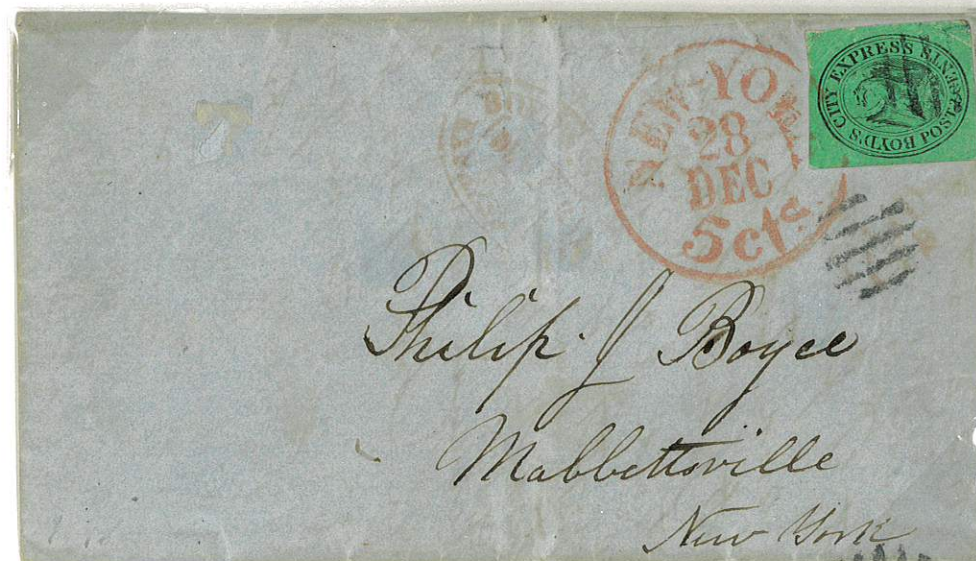 BOYD'S CITY EXPRESS POST
CENTS
NEW-YORK
28
DEC
5 cts
Philip J Boyce
Mabbettsville
New York